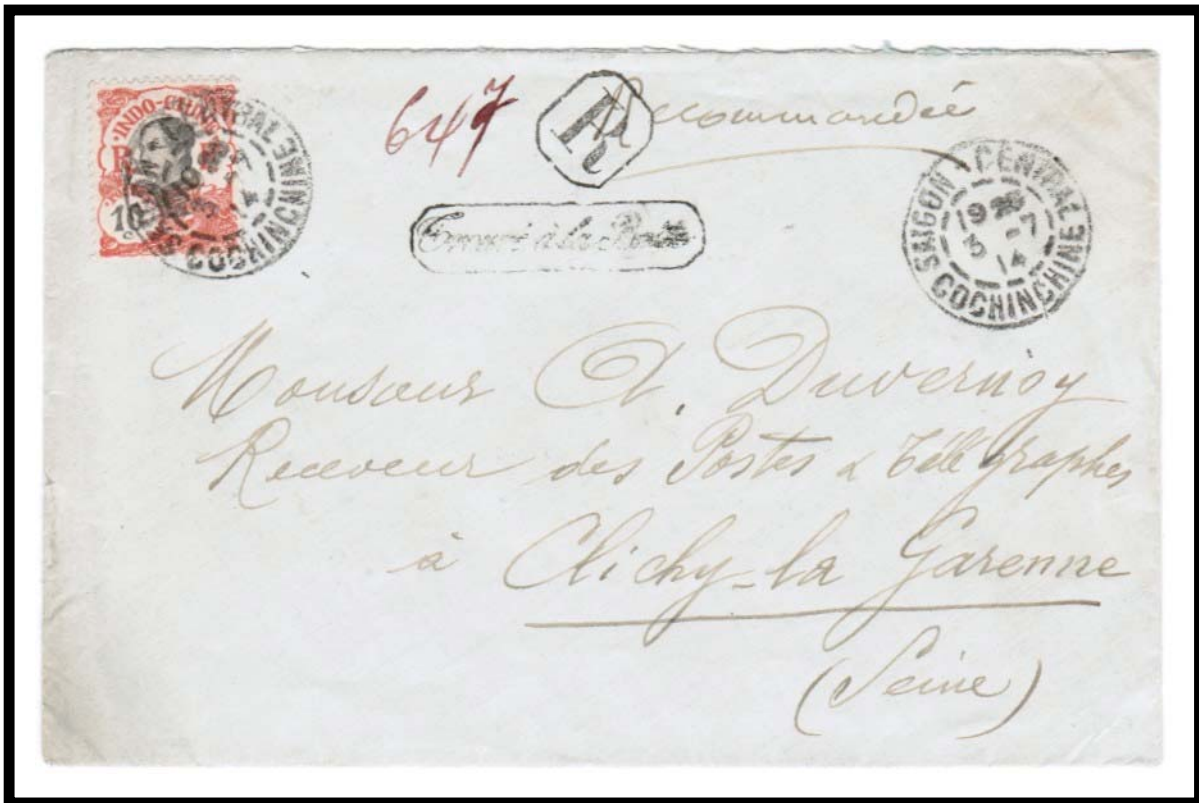 INDO-CHINE
R F
10
SAIGON-CENTRAL
COCHINCHINE
6477
R
Recommandée
Trouvé à la Boite
SAIGON - CENTRAL
9
3 -7
14
COCHINCHINE
Monsieur A. Duvernoy
Receveur des Postes & Télégraphes
à Clichy-la Garenne
(Seine)